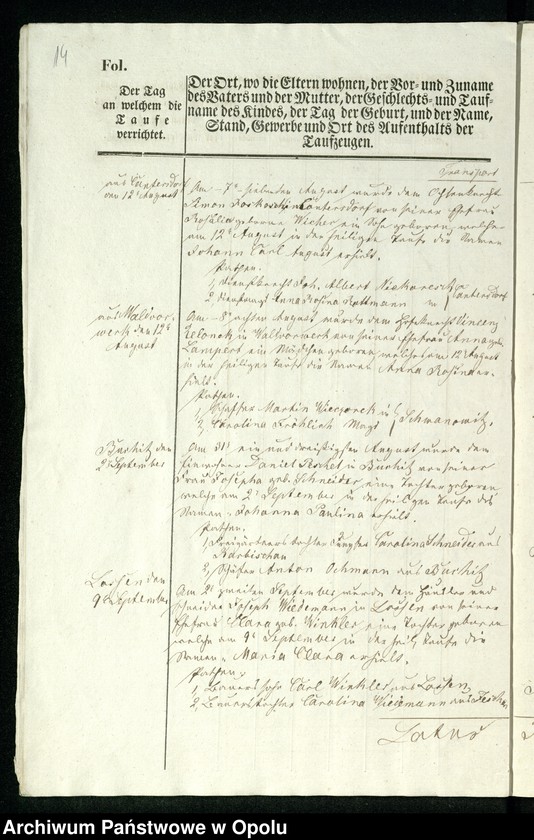 14
Fol.
Der Tag
an welchem die
Taufe
verrichtet.
Der Ort, wo die Eltern wohnen, der Vor- und Zuname
des Vaters und der Mutter, der Geschlechts- und Tauf-
name des Kindes, der Tag der Geburt, und der Name,
Stand, Gewerbe und Ort des Aufenthalts der
Taufzeugen.
Transport
aus Cantersdorf
den 12t August
Am 7t siebenden August wurde dem Ochsenknecht
Simon in Cantersdorf von seiner Ehefrau
Rosalia geborne Wicher ein Sohn geboren, welcher
am 12t August in der heiligen Taufe die Namen
Johann Carl August erhielt.
Pathen.
1, Dienstknecht Joh. Albert
2, Anna Rosina in Cantersdorf
aus Vorwerk
den 12t
August
Am 8t achten August wurde dem Hofeknecht Vincenz
in Vorwerk von seiner Ehefrau Anna geb.
Lampert ein Mädchen geboren welches am 12t August
in der heiligen Taufe die Namen Anna Rosina er-
hielt.
Pathen.
1, Schaffer Martin Wieczorek
2, Carolina Fröhlich Magd Schwanowitz.
Buchitz den
2t September
Am 31t ein und dreißigsten August wurde dem
Einwohner Daniel Peschel in Buchitz von seiner
Frau Josepha geb. Schneider eine Tochter geboren
welche am 2t September in der heiligen Taufe die
Namen Johanna Paulina erhielt.
Pathen.
1, Freigärtnerstochter Jungfer Carolina Schneider aus
2, Schäfer Anton Ochmann aus Buchitz
Lossen den
9ten September
Am 2t zweiten September wurde dem Häusler und
Schneider Joseph Wiedemann in Lossen von seiner
Ehefrau Clara geb. Winkler eine Tochter geboren
welche am 9t September in der heil. Taufe die
Namen Maria Clara erhielt.
Pathen.
1, Bauerssohn Carl Winkler aus Lossen
2, Bauerstochter Carolina Wiedemann aus
Latus
Archiwum Państwowe w Opolu